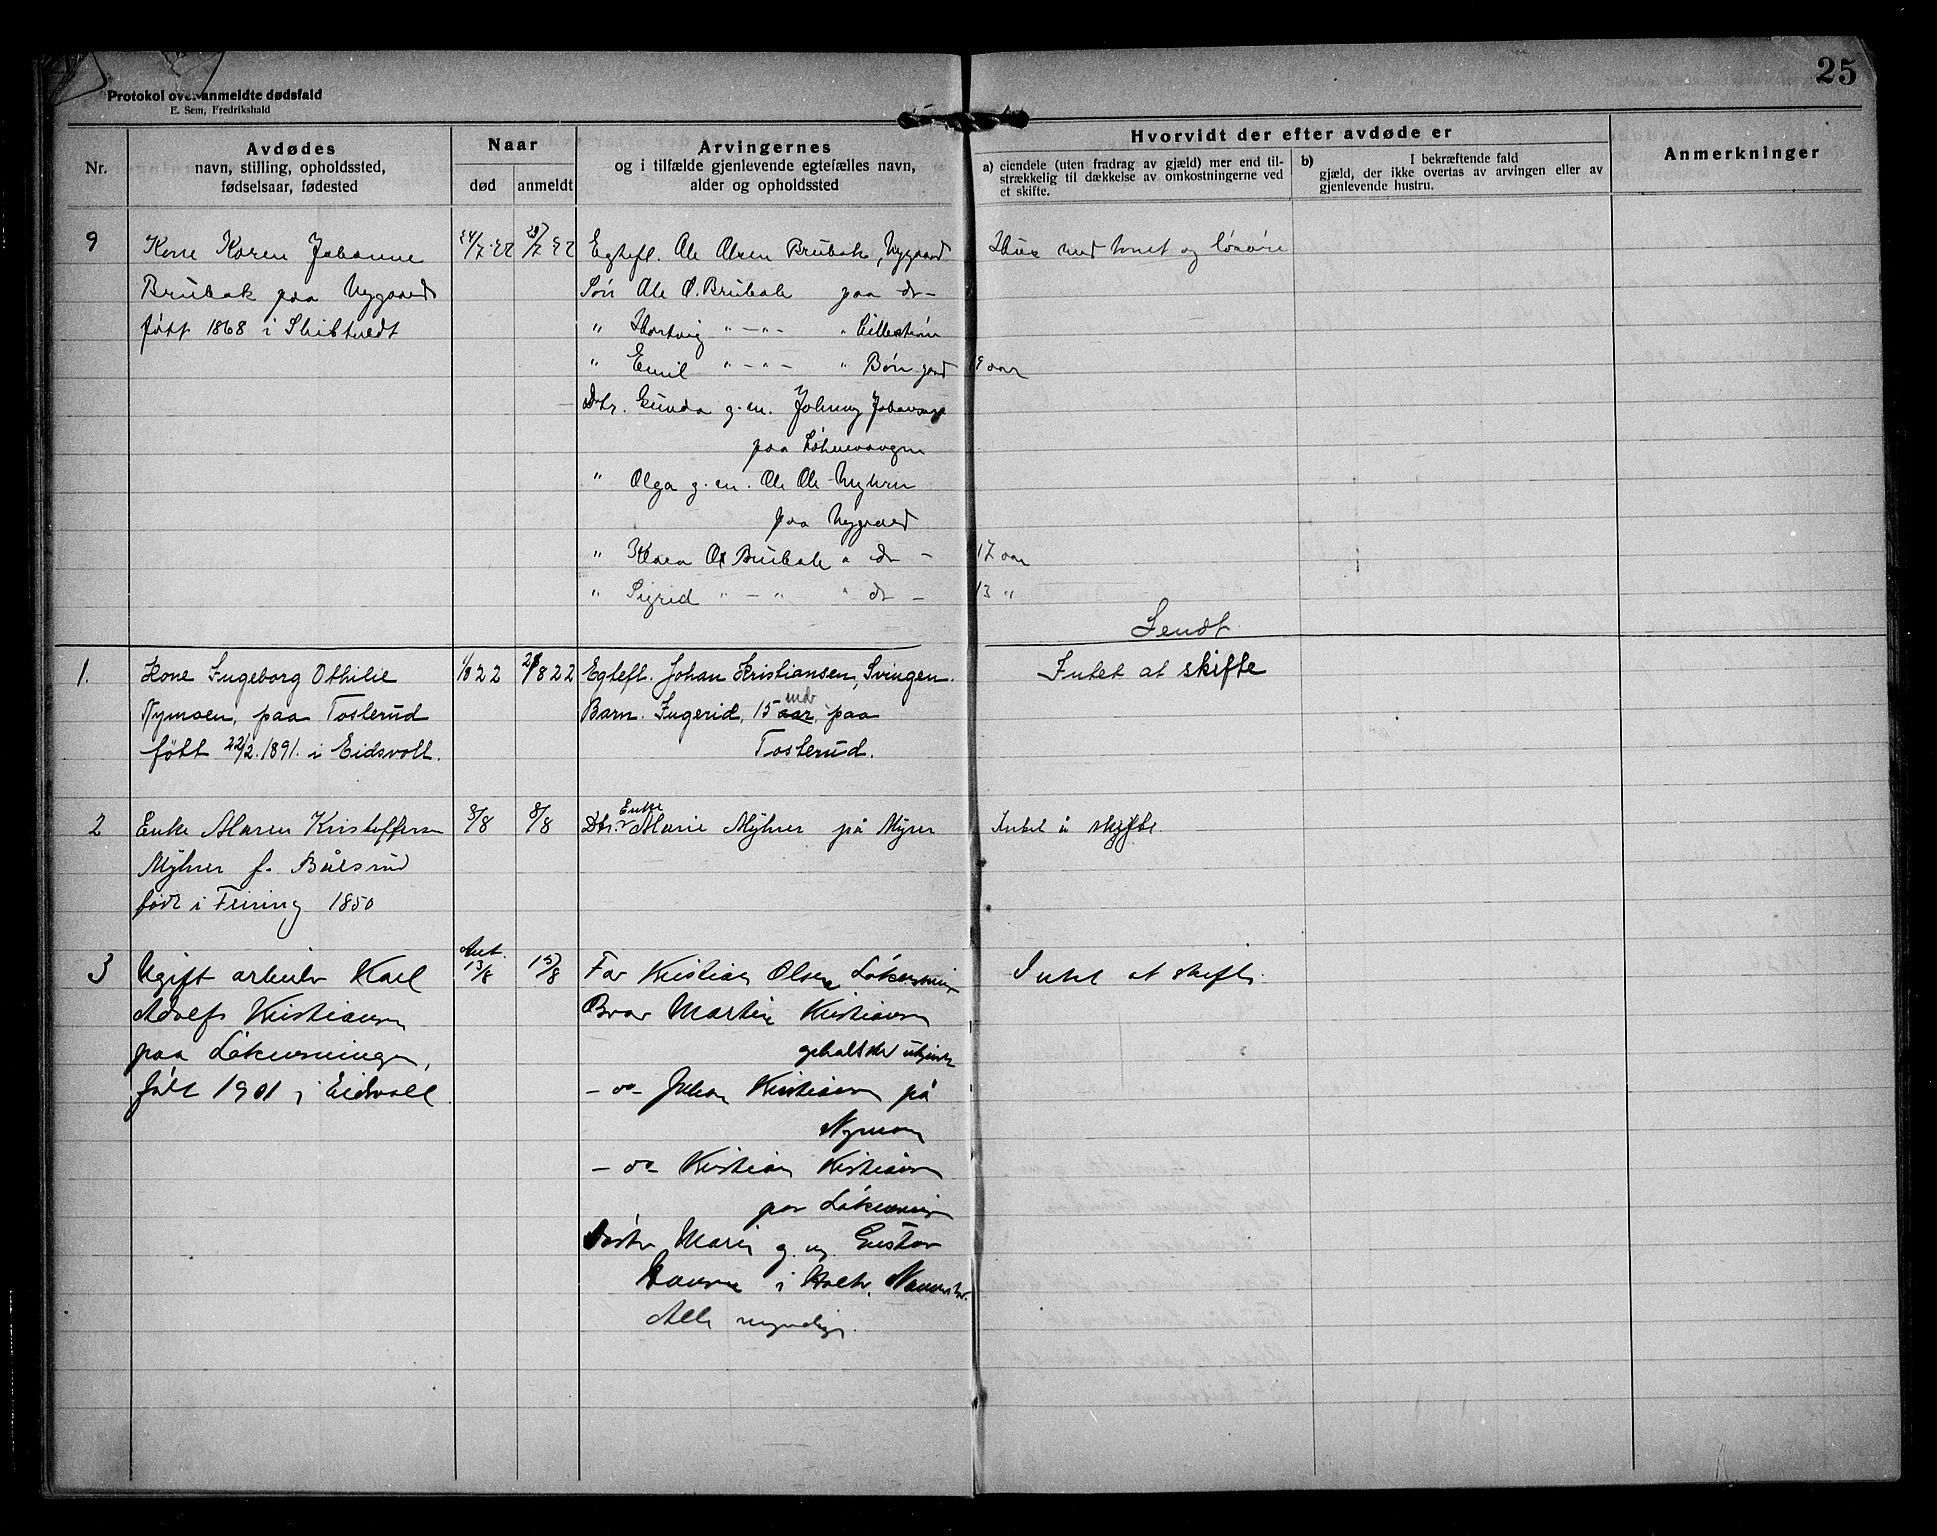 25
Protokol over anmeldte dødsfald
E. Sem, Fredrikshald
Nr.
Avdødes
navn, stilling, opholdssted,
fødselsaar, fødested
Naar
død
anmeldt
Arvingernes
og i tilfælde gjenlevende egtefælles navn,
alder og opholdssted
Hvorvidt der efter avdøde er
a) eiendele (uten fradrag av gjæld) mer end til-
strækkelig til dækkelse av omkostningerne ved
et skifte.
b) I bekræftende fald
gjæld, der ikke overtas av arvingen eller av
gjenlevende hustru.
Anmerkninger
9
Kone Karen Johanne
Brubak paa Nygaard
født 1868 i Skibtvedt
24/7.22
29/7 22
Egtefl. Ole Olsen Brubak, Nygaard
Søn Ole O. Brubak paa do-
" Hartvig " - " - " Lillestrøm
" Emil " - " - " Børn gaard 19 aar
Dtr. Gunda g.m. Johnny Johansen
paa
" Olga g.m. Ole Ole Myhrer
paa Nygaard
" Klara O. Brubak " do - 17 aar
" Sigrid " - " " do - 13 "
Hus med tomt og løsøre
Sendt
1.
Kone Ingeborg Othilie
Nymoen, paa Tosterud
født 22/2.1891. i Eidsvoll.
1/8 22
2/8 22
Egtefl. Johan Kristiansen, Svingen.
Barn. Ingerid, 15 aar mdr, paa
Tosterud.
Intet at skifte
2
Enke Maren Kristoffersen
Myhrer f. Bålsrud
født i Feiring 1850
3/8
8/8
Dtr. Enke Marie Myhrer på Myrer
Intet å skifte.
3
Ugift arbeider Karl
Adolf Kristiansen
paa Løkensvingen,
født 1901 i Eidsvoll.
Ant.
13/8
15/8
Far Kristian Olsen Løkensvingen
Bror Martin Kristiansen
- do - Johan Kristiansen på
Nymoen
- do - Kristian Kristiansen
paa Løkensvingen
Søster Marie g. m. Gustav
Hansen i Holter, Nannestad.
Alle myndige.
Intet at skifte.